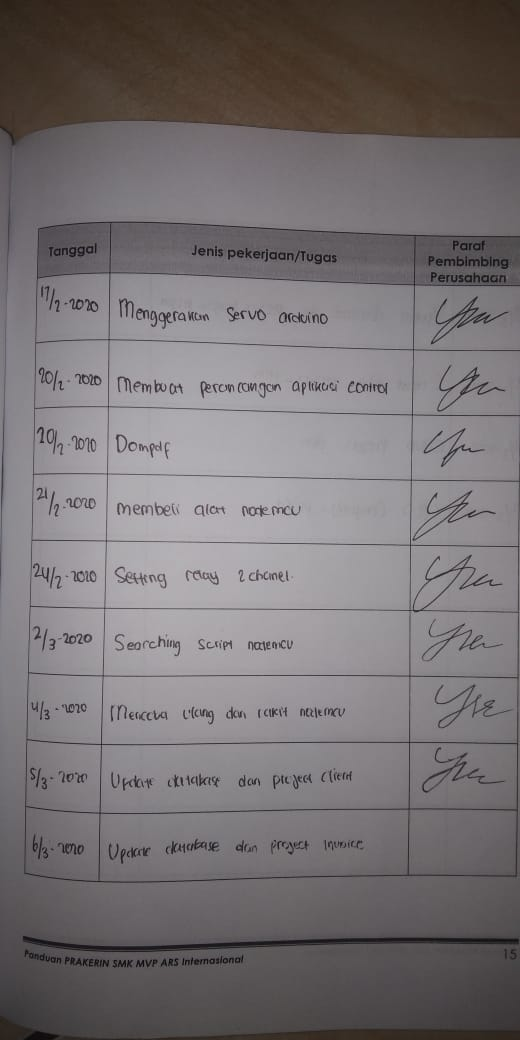 Tanggal
Jenis pekerjaan/Tugas
Paraf
Pembimbing
Perusahaan
17/2-2020 Menggerakan Servo arduino
20/2-2020 Membuat perancangan aplikasi control
20/2-2020 Dompdf
21/2-2020 membeli alat nodemcu
24/2-2020 Setting relay 2 chanel.
2/3-2020 Searching script nodemcu
4/3-2020 Mencoba ulang dan rakit nodemcu
5/3-2020 Update database dan project client
6/3-2020 Update database dan project Invoice
Panduan PRAKERIN SMK MVP ARS Internasional
15